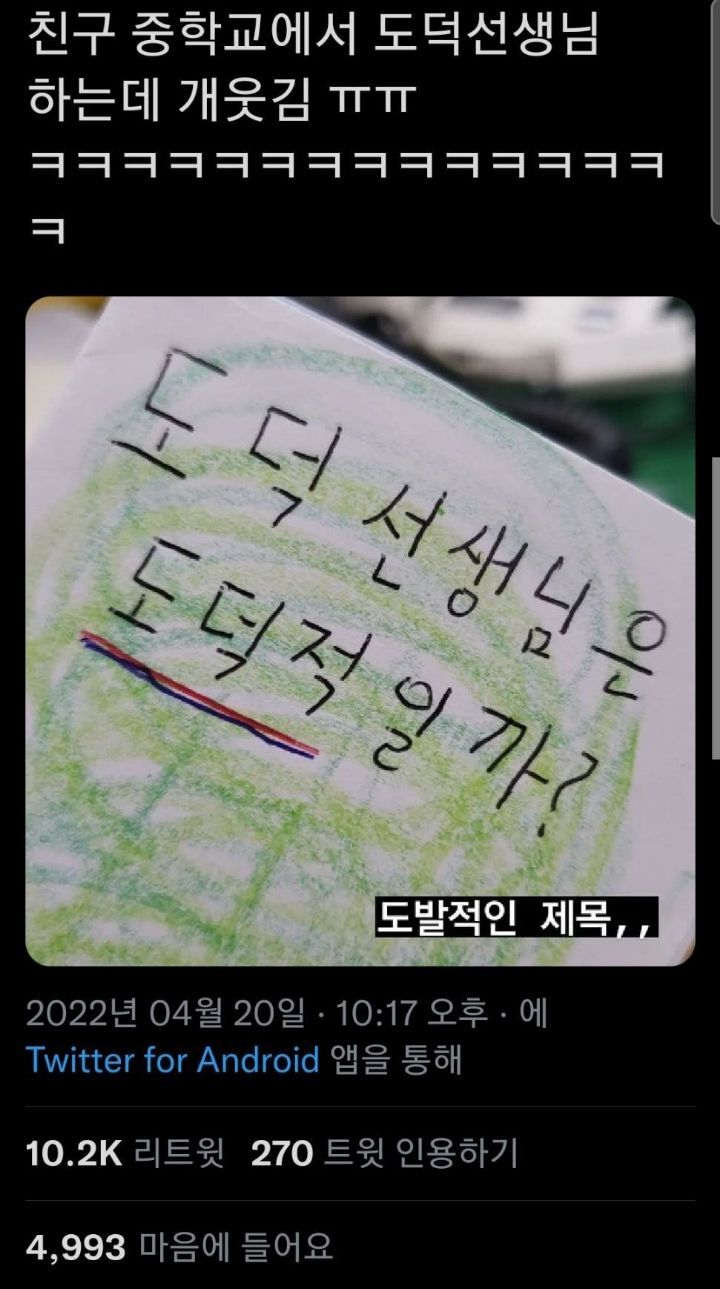 친구 중학교에서 도덕선생님
하는데 개웃김 ㅠㅠ
ㅋㅋㅋㅋㅋㅋㅋㅋㅋㅋㅋㅋㅋㅋ
ㅋ
도덕 선생님은
도덕적일까?
도발적인 제목,,
2022년 04월 20일 · 10:17 오후 · 에
Twitter for Android 앱을 통해
10.2K 리트윗 270 트윗 인용하기
4,993 마음에 들어요